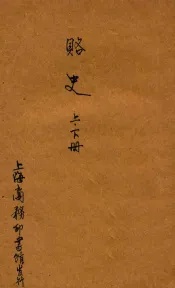 賂史 上·下冊
上海商務印書館出版